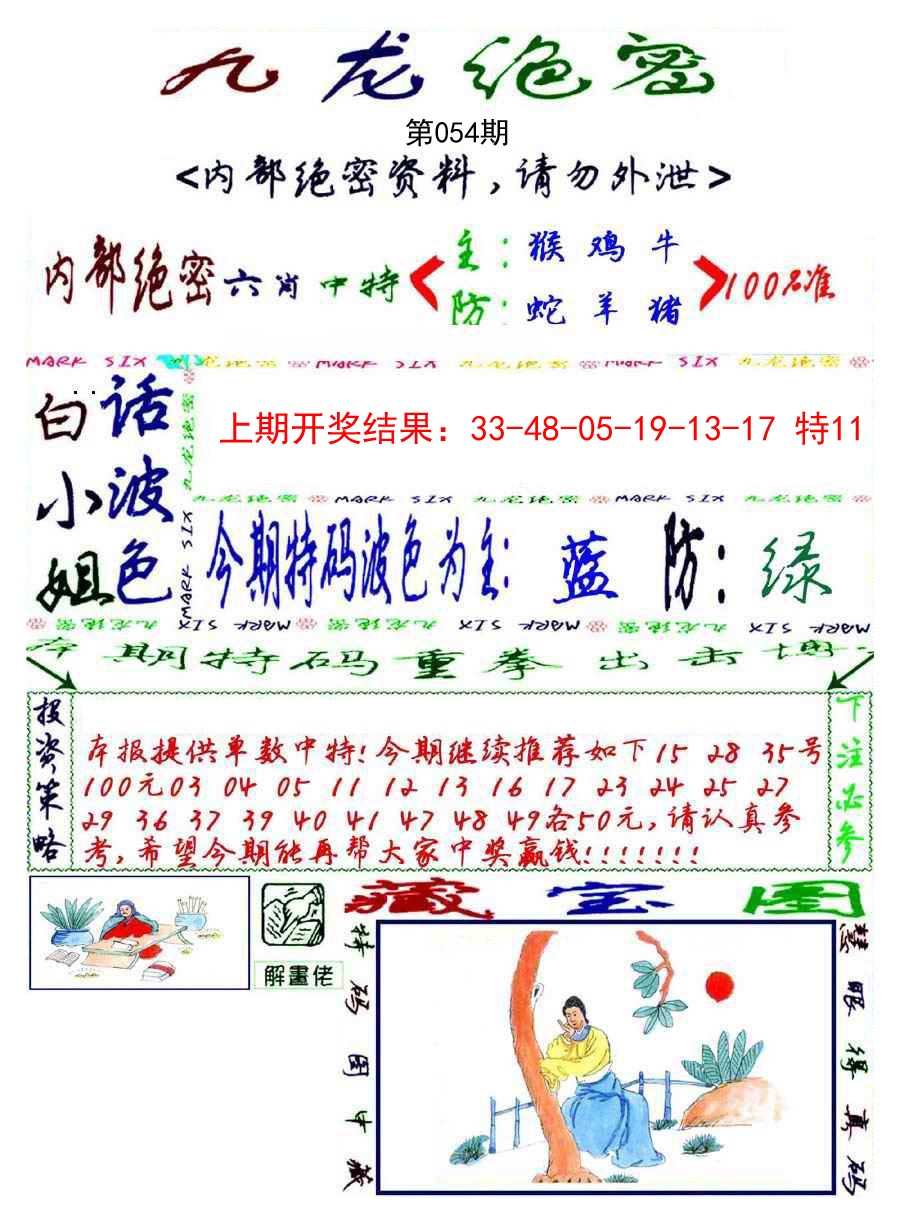 九龙绝密
第054期
<内部绝密资料,请勿外泄>
内部绝密六肖中特
主:猴 鸡 牛
防:蛇 羊 猪
100%准
MARK SIX 九龙绝密 MARK SIX 九龙绝密 MARK SIX 九龙绝密
白话
小波
姐色
九龙绝密
MARK SIX
上期开奖结果：33-48-05-19-13-17 特11
九龙绝密 MARK SIX 九龙绝密 MARK SIX 九龙绝密
今期特码波色为主: 蓝 防: 绿
MARK SIX 九龙绝密 MARK SIX 九龙绝密 SIX MARK 九龙绝密 SIX MARK
本期特码重拳出击
投资策略
本报提供单数中特!今期继续推荐如下15 28 35号
100元03 04 05 11 12 13 16 17 23 24 25 27
29 36 37 39 40 41 47 48 49各50元,请认真参
考,希望今期能再帮大家中奖赢钱!!!!!!!
下注必参
藏宝图
解畫佬
特码图中藏
慧眼得真码